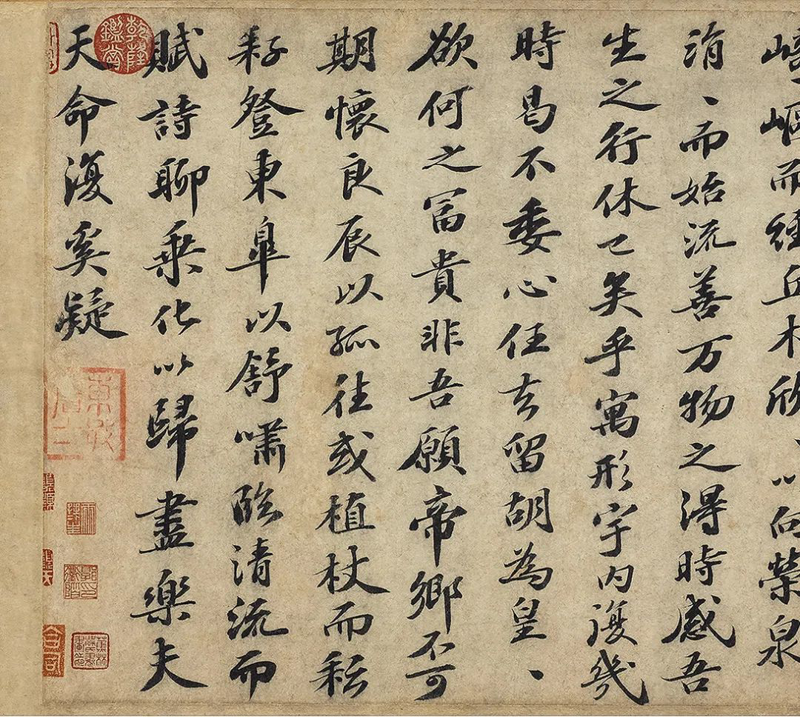 崎嶇而經丘木欣、以向榮泉
涓、而始流善万物之得時感吾
生之行休已矣乎寓形宇内復幾
時曷不委心任去留胡為皇、
欲何之富貴非吾願帝鄉不可
期懷良辰以孤往或植杖而耘
耔登東皋以舒嘯臨清流而
賦詩聊乘化以歸盡樂夫
天命復奚疑
乾隆鑑賞